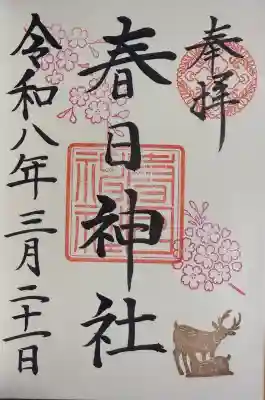 奉拝
春日神社
令和八年三月二十一日